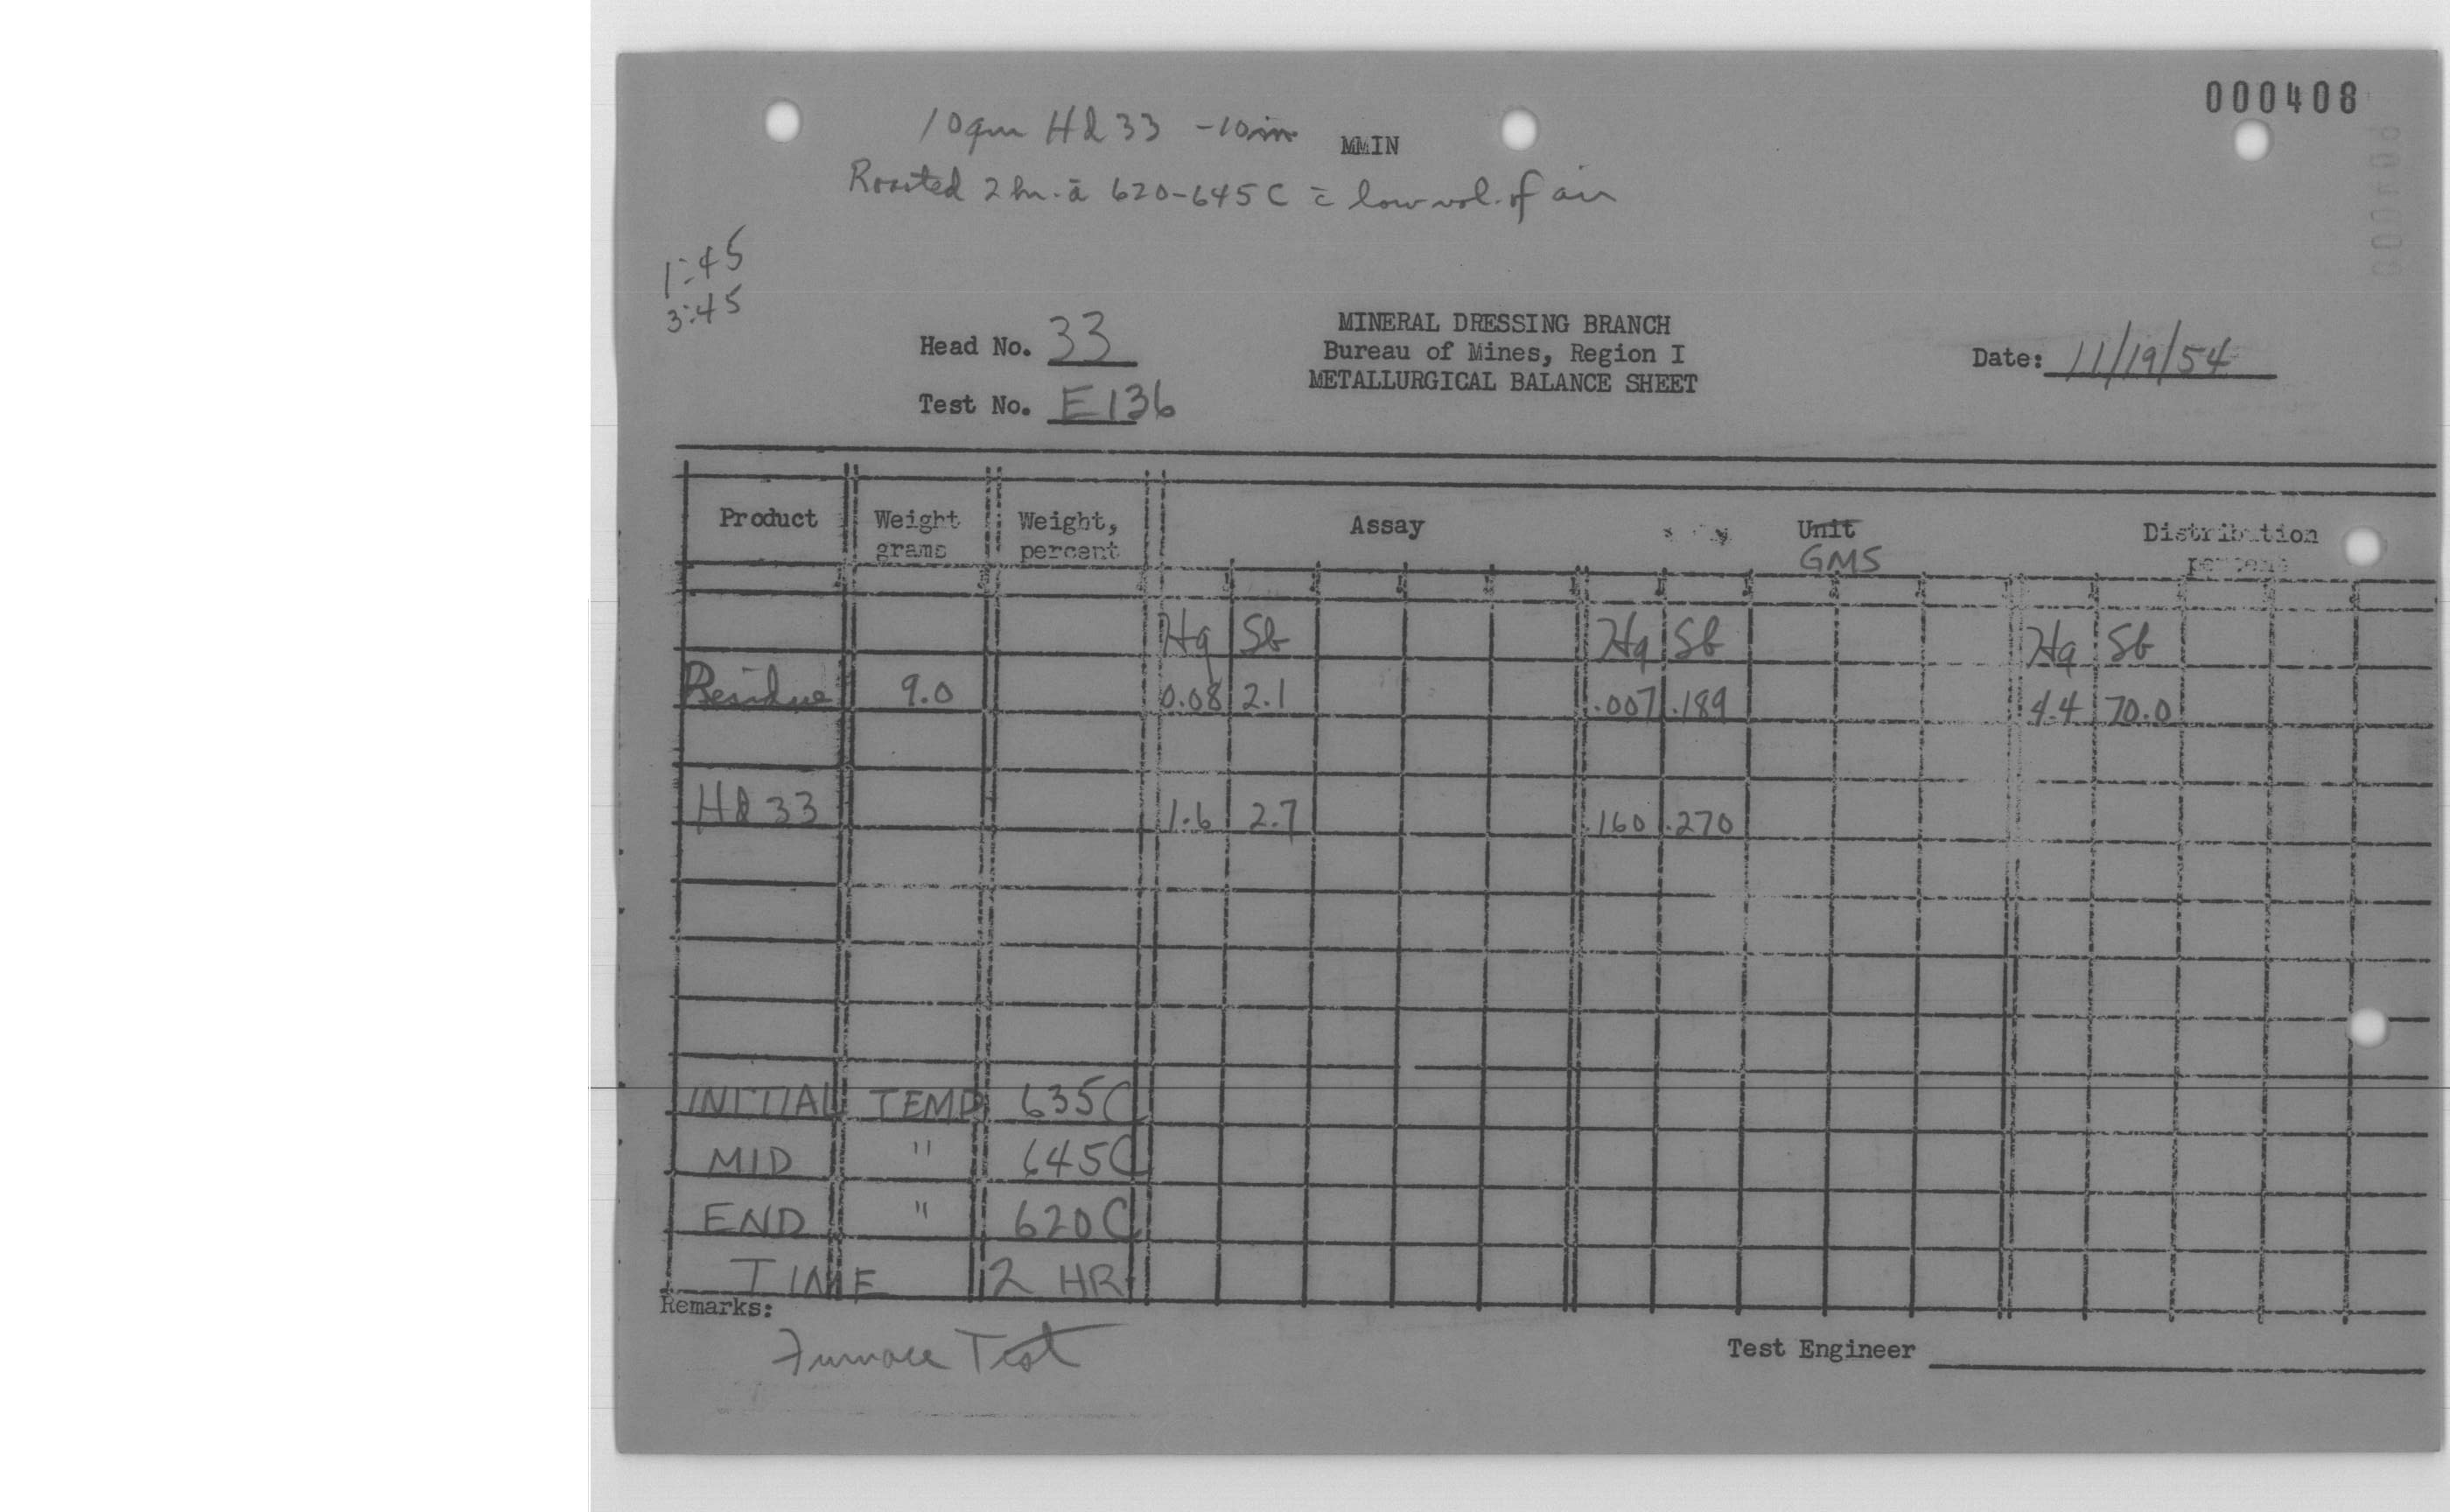 000408
10gm Hd 33 -10m MMIN
Roasted 2 hr. ā 620-645C c̄ low vol. of air
1:45
3:45
Head No. 33
Test No. E136
MINERAL DRESSING BRANCH
Bureau of Mines, Region I
METALLURGICAL BALANCE SHEET
Date: 11/19/54
Product Weight grams Weight, percent Assay Unit GMS Distribution percent
Hg Sb Hg Sb Hg Sb
Residue 9.0 0.08 2.1 .007 .189 4.4 70.0
Hd 33 1.6 2.7 .160 .270
INITIAL TEMP 635C
MID " 645C
END " 620C
TIME 2 HR
Remarks:
Furnace Test
Test Engineer